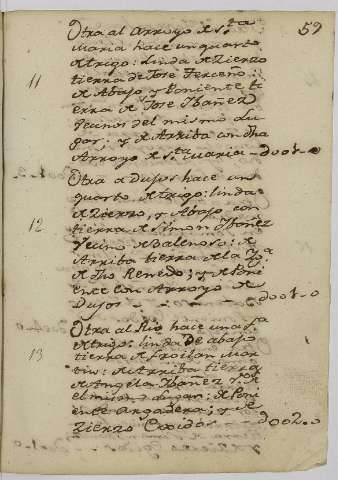 59
Otra al Arroyo de S.ta
Maria hace un quarto
de trigo: linda de Zierzo
11 tierra de Jose Terceño:
de Abajo, y Poniente ti
erra de Jose Ibañez
Vecinos del mismo Lu
gar; y de Arriba con dho
Arroyo de S.ta Maria - d001-0
Otra a Dujos hace un
quarto de trigo: linda
12 de Zierzo, y Abajo con
tierra de Simon Ibañez
Vecino de Balenoso: de
Arriba tierra de la
de dho Renedo; y de Poni
ente con Arroyo de
Dujos - - - - d001-0
Otra al Rio hace una f.a
de trigo: linda de abajo
13 tierra de Froilan Mar
tin: de Arriba tierra
de Angela Ibañez
el mismo Lugar: de Poni
ente Arga
Zierzo Exidos - d002-0